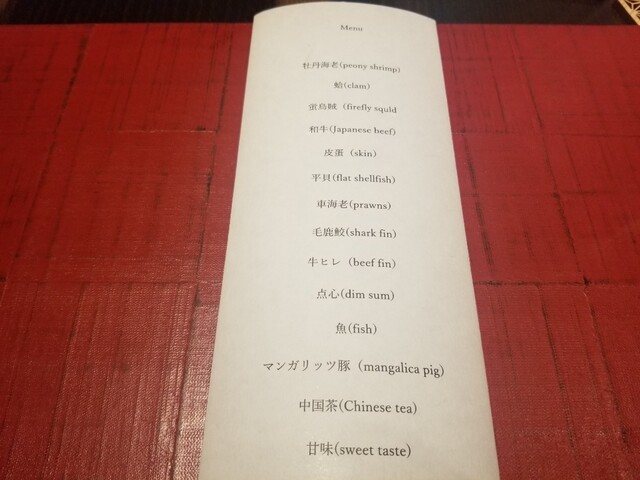 Menu
牡丹海老(peony shrimp)
蛤(clam)
蛍烏賊（firefly squld
和牛(Japanese beef)
皮蛋（skin）
平貝(flat shellfish)
車海老(prawns)
毛鹿鮫(shark fin)
牛ヒレ（beef fin）
点心(dim sum)
魚(fish)
マンガリッツ豚（mangalica pig)
中国茶(Chinese tea)
甘味(sweet taste)